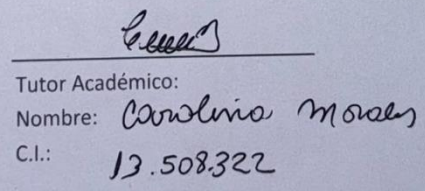 Tutor Académico:
Nombre: Carolina Morales
C.I.: 13.508.322